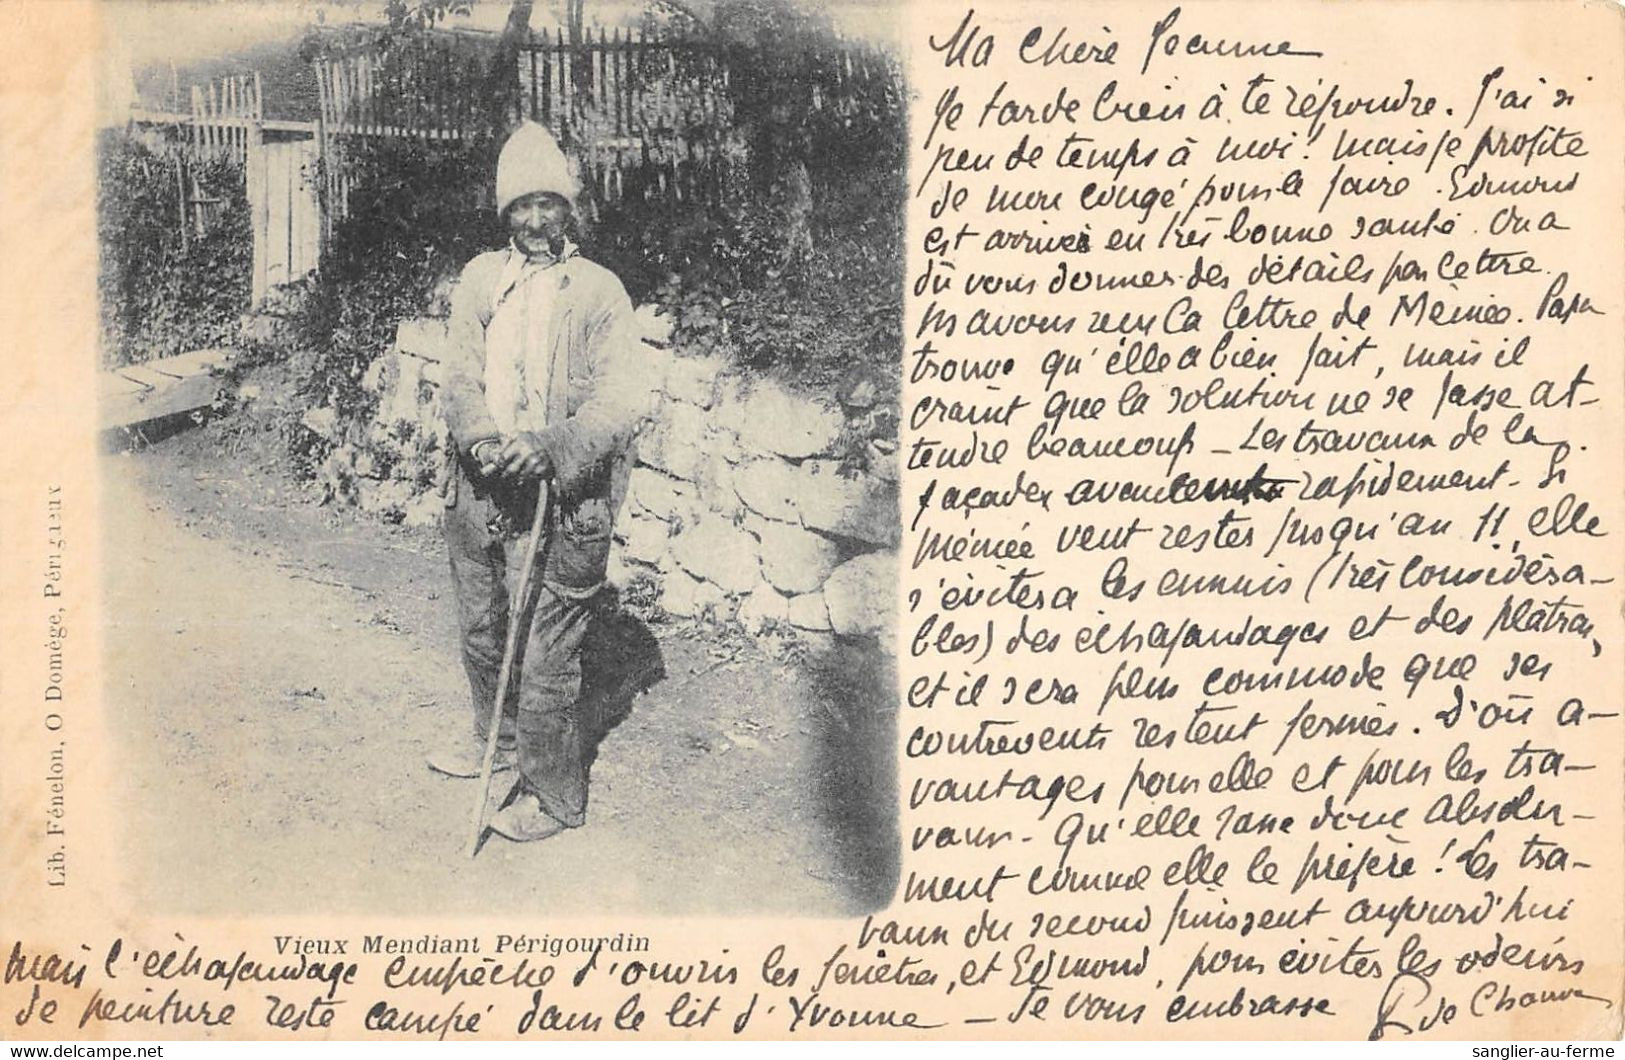 Ma Chère Jeanne
Je tarde bien à te répondre. J'ai si
peu de temps à moi! mais je profite
de mon congé pour le faire. Edmond
est arrivé en très bonne santé. On a
dû vous donner des détails par lettre.
Ns avons reçu la lettre de Mémée. Papa
trouve qu'elle a bien fait, mais il
craint que la solution ne se fasse at-
tendre beaucoup - Les travaux de la
façade avancent rapidement - Si
Mémée veut rester jusqu'au 11, elle
s'évitera les ennuis (très considéra-
bles) des échafaudages et des plâtras,
et il sera plus commode que ses
contrevents restent fermés. D'où a-
vantages pour elle et pour les tra-
vaux - Qu'elle fasse donc absolu-
ment comme elle le préfère! Les tra-
vaux du second finissent aujourd'hui
mais l'échafaudage empêche d'ouvrir les fenêtres, et Edmond, pour éviter les odeurs
de peinture reste campé dans le lit d'Yvonne - Je vous embrasse
Vieux Mendiant Périgourdin
Lib. Fénelon, O Domège, Périgueux
sanglier-au-ferme.com